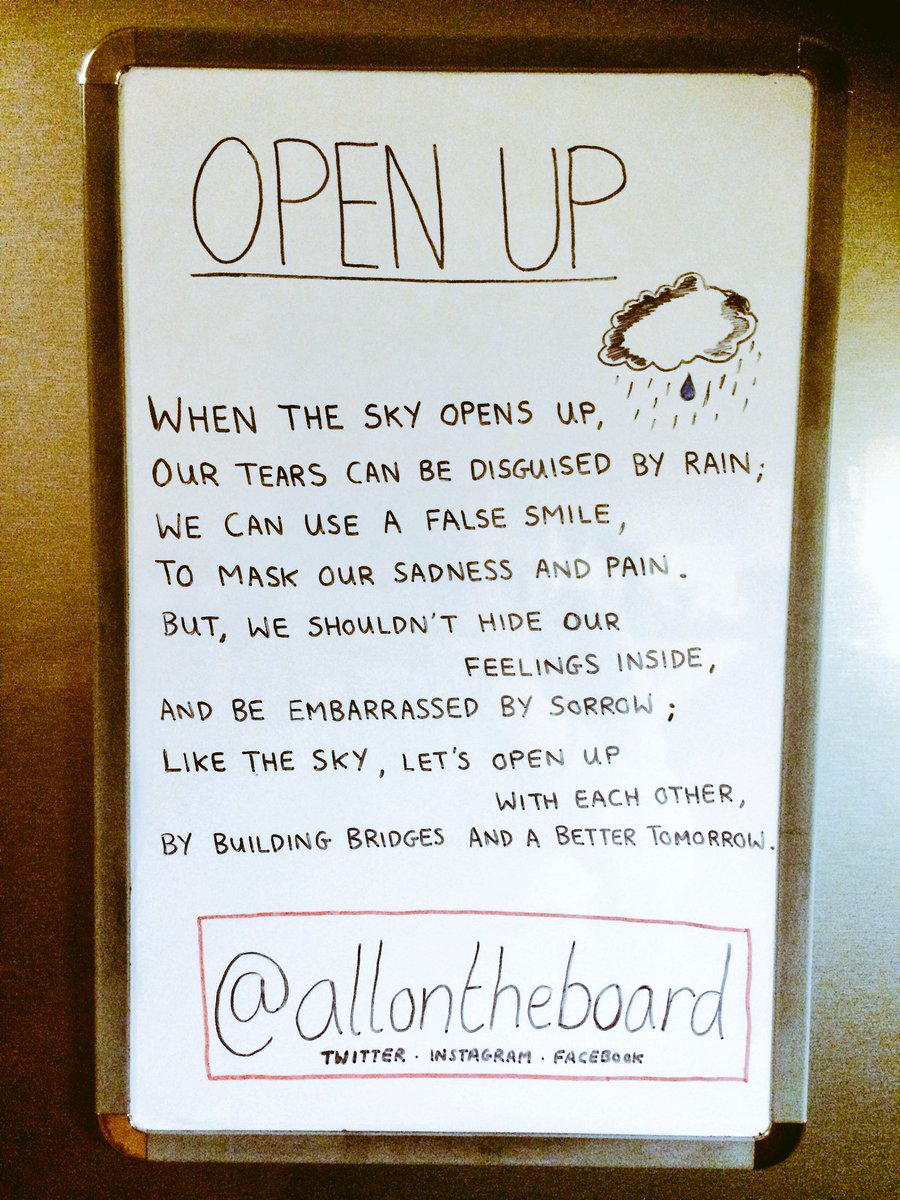 OPEN UP
WHEN THE SKY OPENS UP,
OUR TEARS CAN BE DISGUISED BY RAIN;
WE CAN USE A FALSE SMILE,
TO MASK OUR SADNESS AND PAIN.
BUT, WE SHOULDN'T HIDE OUR
FEELINGS INSIDE,
AND BE EMBARRASSED BY SORROW;
LIKE THE SKY, LET'S OPEN UP
WITH EACH OTHER,
BY BUILDING BRIDGES AND A BETTER TOMORROW.
@allontheboard
TWITTER · INSTAGRAM · FACEBOOK